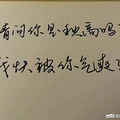 请问你是秋高吗？
我快被你气爽了